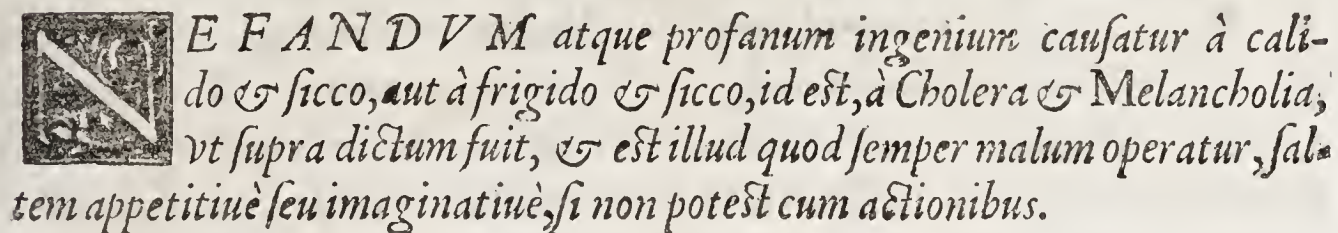 NEFANDVM atque profanum ingenium cauſatur à cali-
do & ſicco, aut à frigido & ſicco, id eſt, à Cholera & Melancholia,
vt ſupra dictum fuit, & eſt illud quod ſemper malum operatur, ſal-
tem appetitiuè ſeu imaginatiuè, ſi non poteſt cum actionibus.